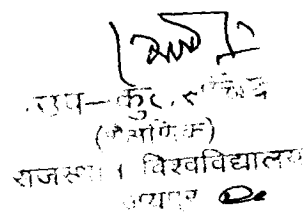 उप-कुल सचिव
(शैक्षणिक)
राजस्थान विश्वविद्यालय
जयपुर